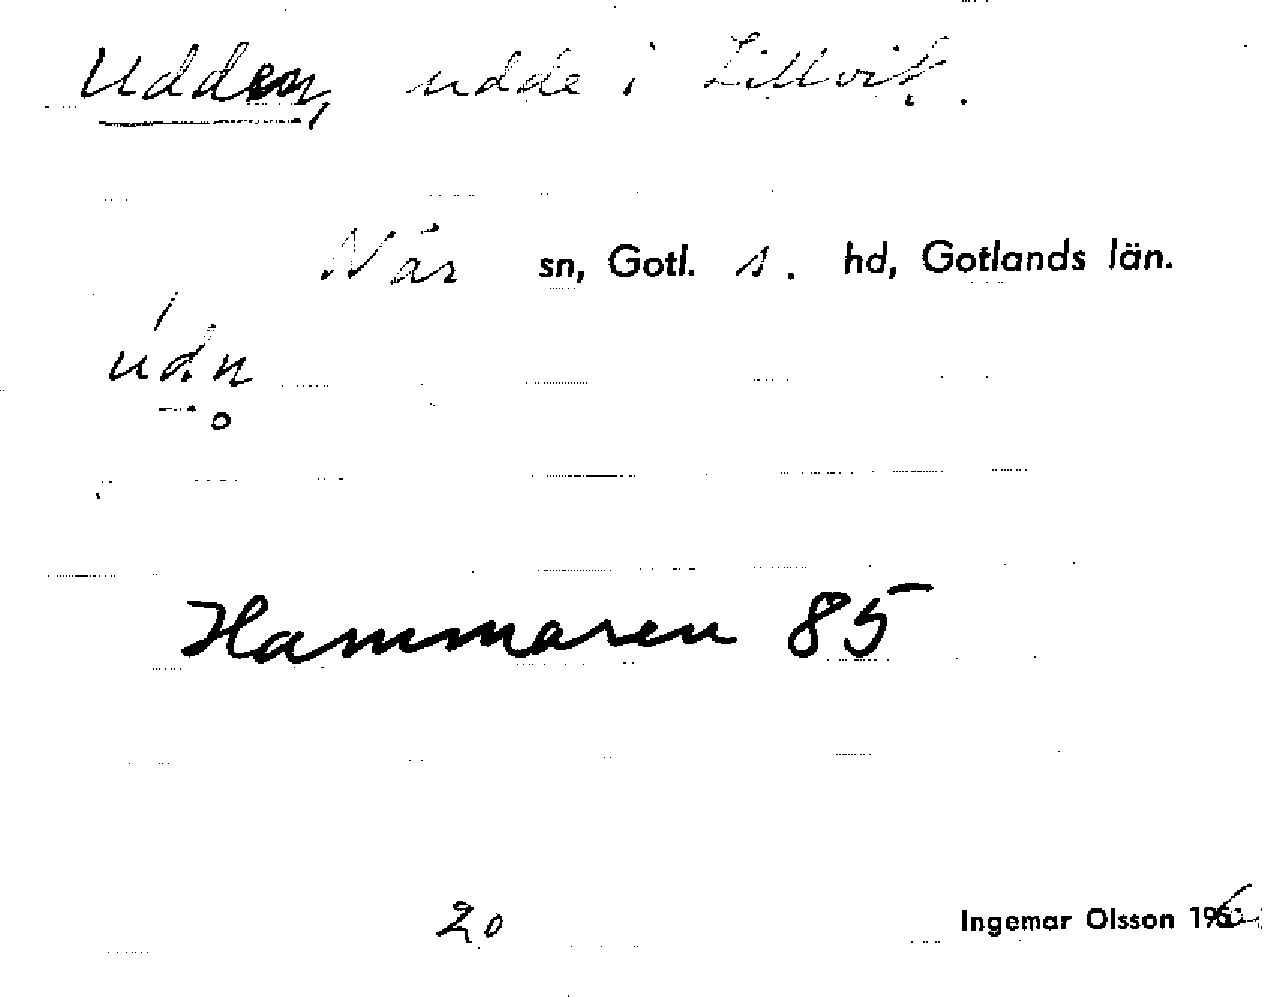 Udden, udde i Lillvik.
När sn, Gotl. s. hd, Gotlands län.
údn̥
Hammaren 85
20 Ingemar Olsson 196